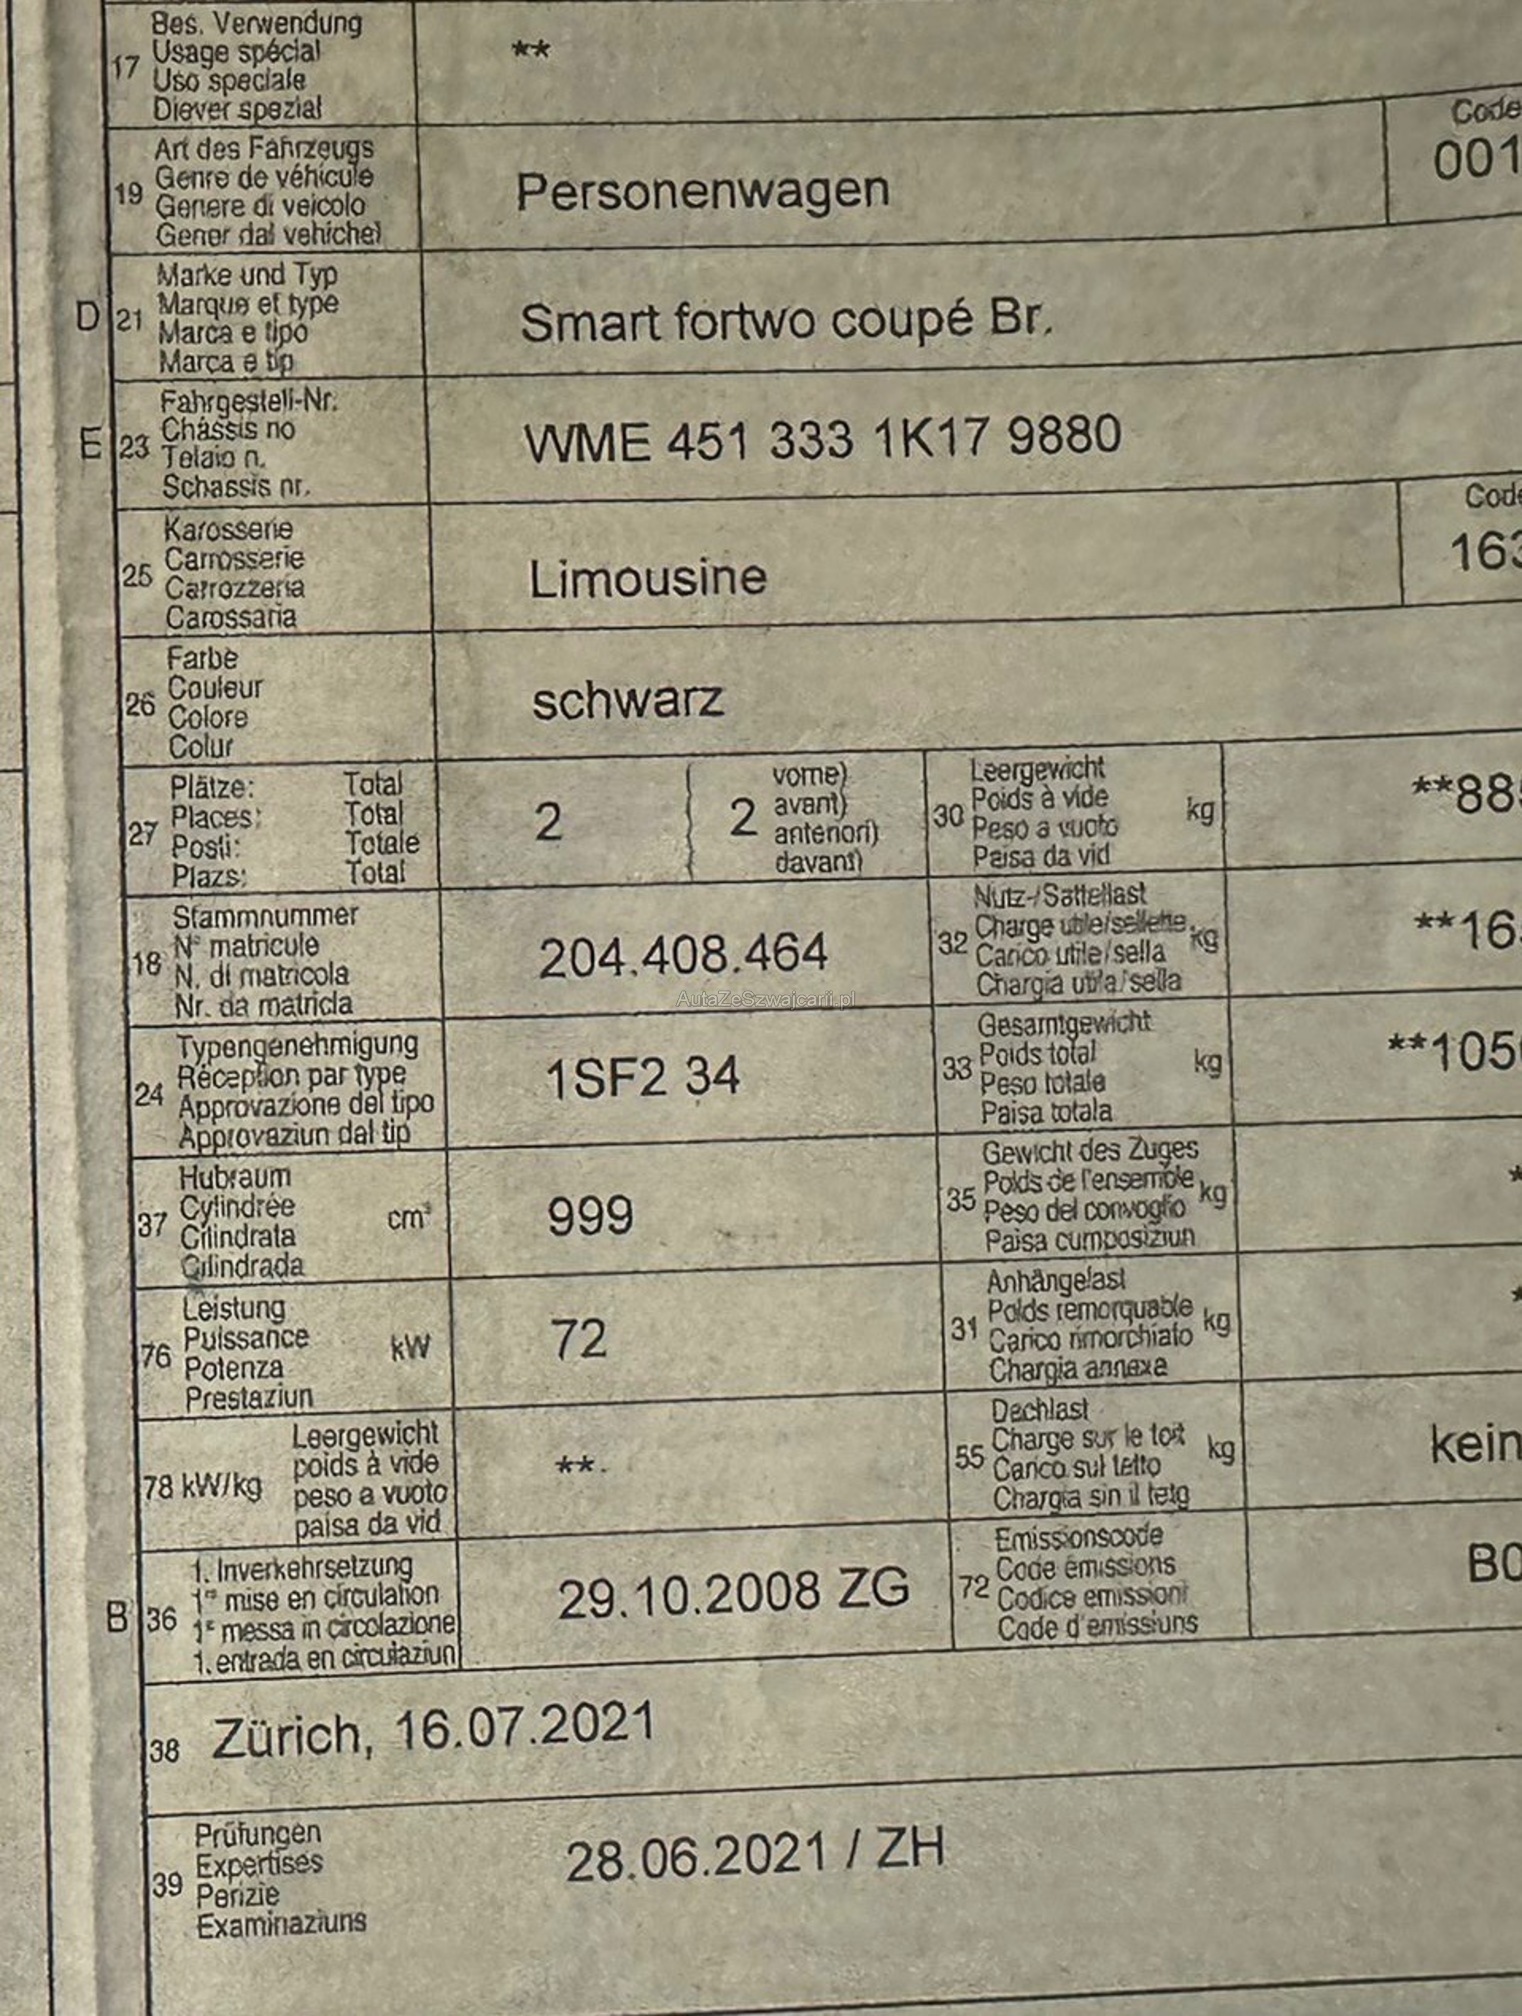 17 Bes. Verwendung
Usage spécial
Uso speciale
Diever spezial
**
19 Art des Fahrzeugs
Genre de véhicule
Genere di veicolo
Gener dal vehichel
Personenwagen
Code
001
D 21 Marke und Typ
Marque et type
Marca e tipo
Marca e tip
Smart fortwo coupé Br.
E 23 Fahrgestell-Nr.
Châssis no
Telaio n.
Schassis nr.
WME 451 333 1K17 9880
25 Karosserie
Carrosserie
Carrozzeria
Carossaria
Limousine
Code
163
26 Farbe
Couleur
Colore
Colur
schwarz
27 Plätze: Total
Places: Total
Posti: Totale
Plazs: Total
2
2 vorne)
avant)
anteriori)
davant)
30 Leergewicht
Poids à vide
Peso a vuoto
Paisa da vid
kg
**88
18 Stammnummer
N° matricule
N. di matricola
Nr. da matricla
204.408.464
32 Nutz-/Sattellast
Charge utile/sellette
Carico utile/sella
Chargia utila/sella
kg
**16
AutaZeSzwajcarii.pl
24 Typengenehmigung
Réception par type
Approvazione del tipo
Approvaziun dal tip
1SF2 34
33 Gesamtgewicht
Poids total
Peso totale
Paisa totala
kg
**105
37 Hubraum
Cylindrée
Cilindrata
Cilindrada
cm³
999
35 Gewicht des Zuges
Poids de l'ensemble
Peso del convoglio
Paisa cumposiziun
kg
*
76 Leistung
Puissance
Potenza
Prestaziun
kW
72
31 Anhängelast
Poids remorquable
Carico rimorchiato
Chargia annexa
kg
*
78 kW/kg
Leergewicht
poids à vide
peso a vuoto
paisa da vid
**.
55 Dachlast
Charge sur le toit
Carico sul tetto
Chargia sin il tetg
kg
kein
B 36 1. Inverkehrsetzung
1re mise en circulation
1a messa in circolazione
1. entrada en circulaziun
29.10.2008 ZG
72 Emissionscode
Code émissions
Codice emissioni
Code d'emissiuns
B0
38 Zürich, 16.07.2021
39 Prüfungen
Expertises
Perizie
Examinaziuns
28.06.2021 / ZH